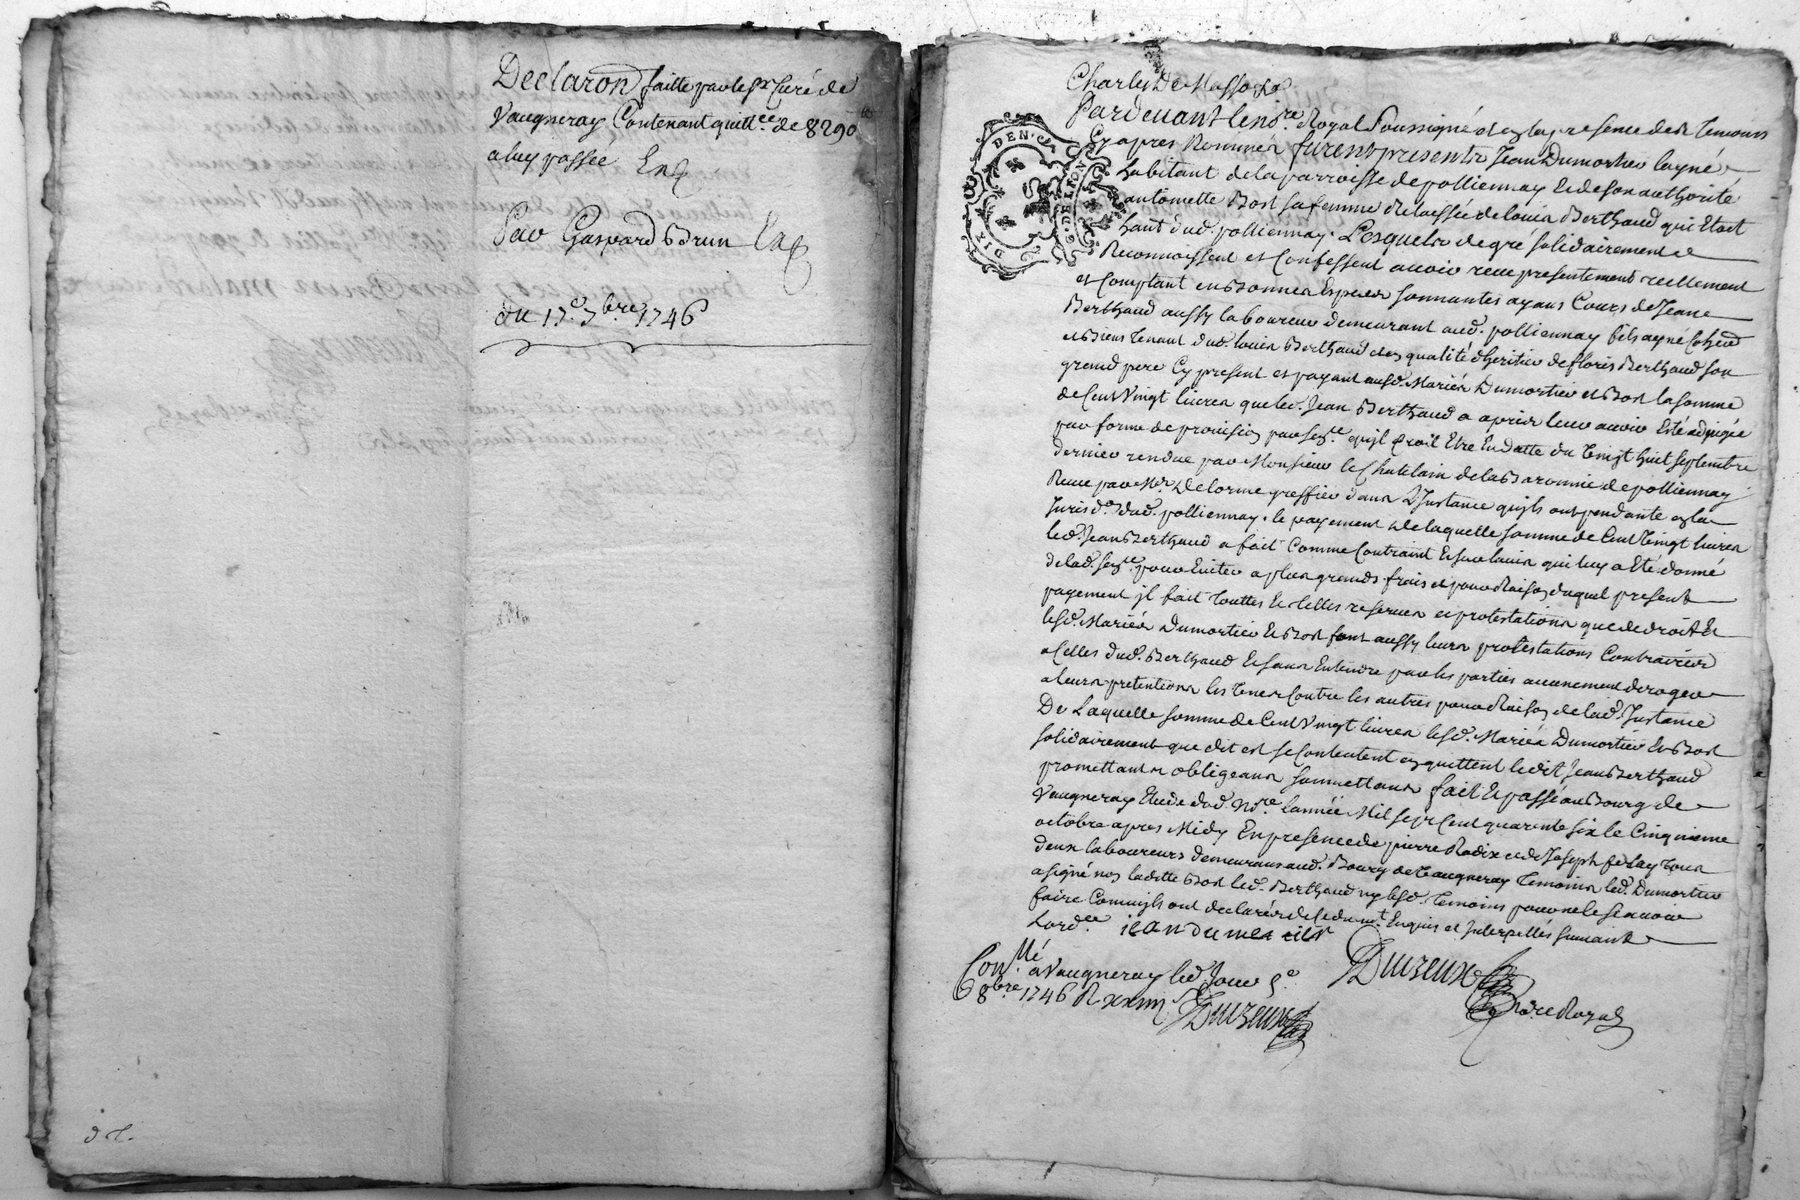 Declaron faitte par le Sr Curé de
Vaugneray Contenant quitt.ce de 8290 ##
a luy passée
Par Gaspard Brun
du 17.e 7bre 1746
Pardevant le no.re Royal Soussigné et en la presence des temoins
Cy apres Nommés furent presents Jean Dumortier layné
habitant de la parroisse de polliennay Et de son authorité
antoinette Bost sa femme Relaissée de louis Berthaud qui Etoit
hant dud. polliennay. Lesquels de gré solidairement
Reconnoissent et Confessent avoir receu presentement reellement
et Comptant en bonnes Especes sonnantes ayans Cours de Jean
Berthaud aussy laboureur demeurant aud. polliennay fils ayné
et biens tenant dud. louis Berthaud et en qualité dheritier de floris Berthaud son
grand pere Cy present et payant ausd. Mariés Dumortier et Bost la somme
de Cent Vingt livres que led. Jean Berthaud a apris leur avoir Esté adjugée
par forme de provision par sen.ce qu'jl Croit Etre En datte du Vingt huit septembre
dernier rendue par Monsieur le Chatelain de la Baronnie de polliennay
Receue par M.r Delorme greffier dans L'Jnstance qu'jls ont pendante en la
Jurisd.on dud. polliennay. le payement de laquelle somme de Cent Vingt livres
led. Jean Berthaud a fait Comme Contraint Et sur lavis qui luy a Eté donné
de lad. sen.ce pour Eviter a plus grands frais et pour Raison duquel present
payement jl fait touttes Et telles reserves et protestations que de droit Et
lesd. Mariés Dumortier Et Bost font aussy leurs protestations Contraires
a Celles dud. Berthaud Et sans Entendre par les parties aucunement deroger
a leurs pretentions les Unes Contre les autres pour Raison de lad. Jnstance
De Laquelle somme de Cent Vingt livres lesd. Mariés Dumortier Et Bost
solidairement que dit est se Contentent en quittent ledit Jean Berthaud
promettans obligeans soumettans fait Et passé au Bourg de
Vaugneray Etude dud. No.re lannée Mil sept Cent quarente six le Cinquieme
octobre apres Midy En presence de pierre Radix et de Joseph
deux laboureurs demeurans aud. Bourg de Vaugneray temoins led. Dumortier
a signé non ladette Bost led. Berthaud ny lesd. temoins pour ne le sçavoir
faire Comme jls ont declarés de Ce dum.t Enquis et Jnterpellés suivant
Lord.ce jean dumortier
Con.llé a Vaugneray led. Jour 5.e
8bre. 1746 R
Duizeux
Duizeux
no.re Royal